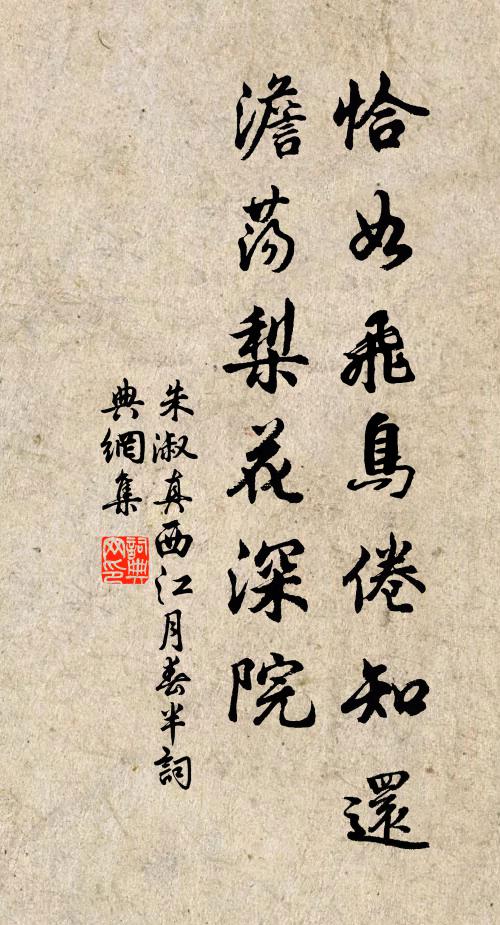 恰如飛鳥倦知還
澹蕩梨花深院
朱淑真西江月春半詞
典網集
詞典网印